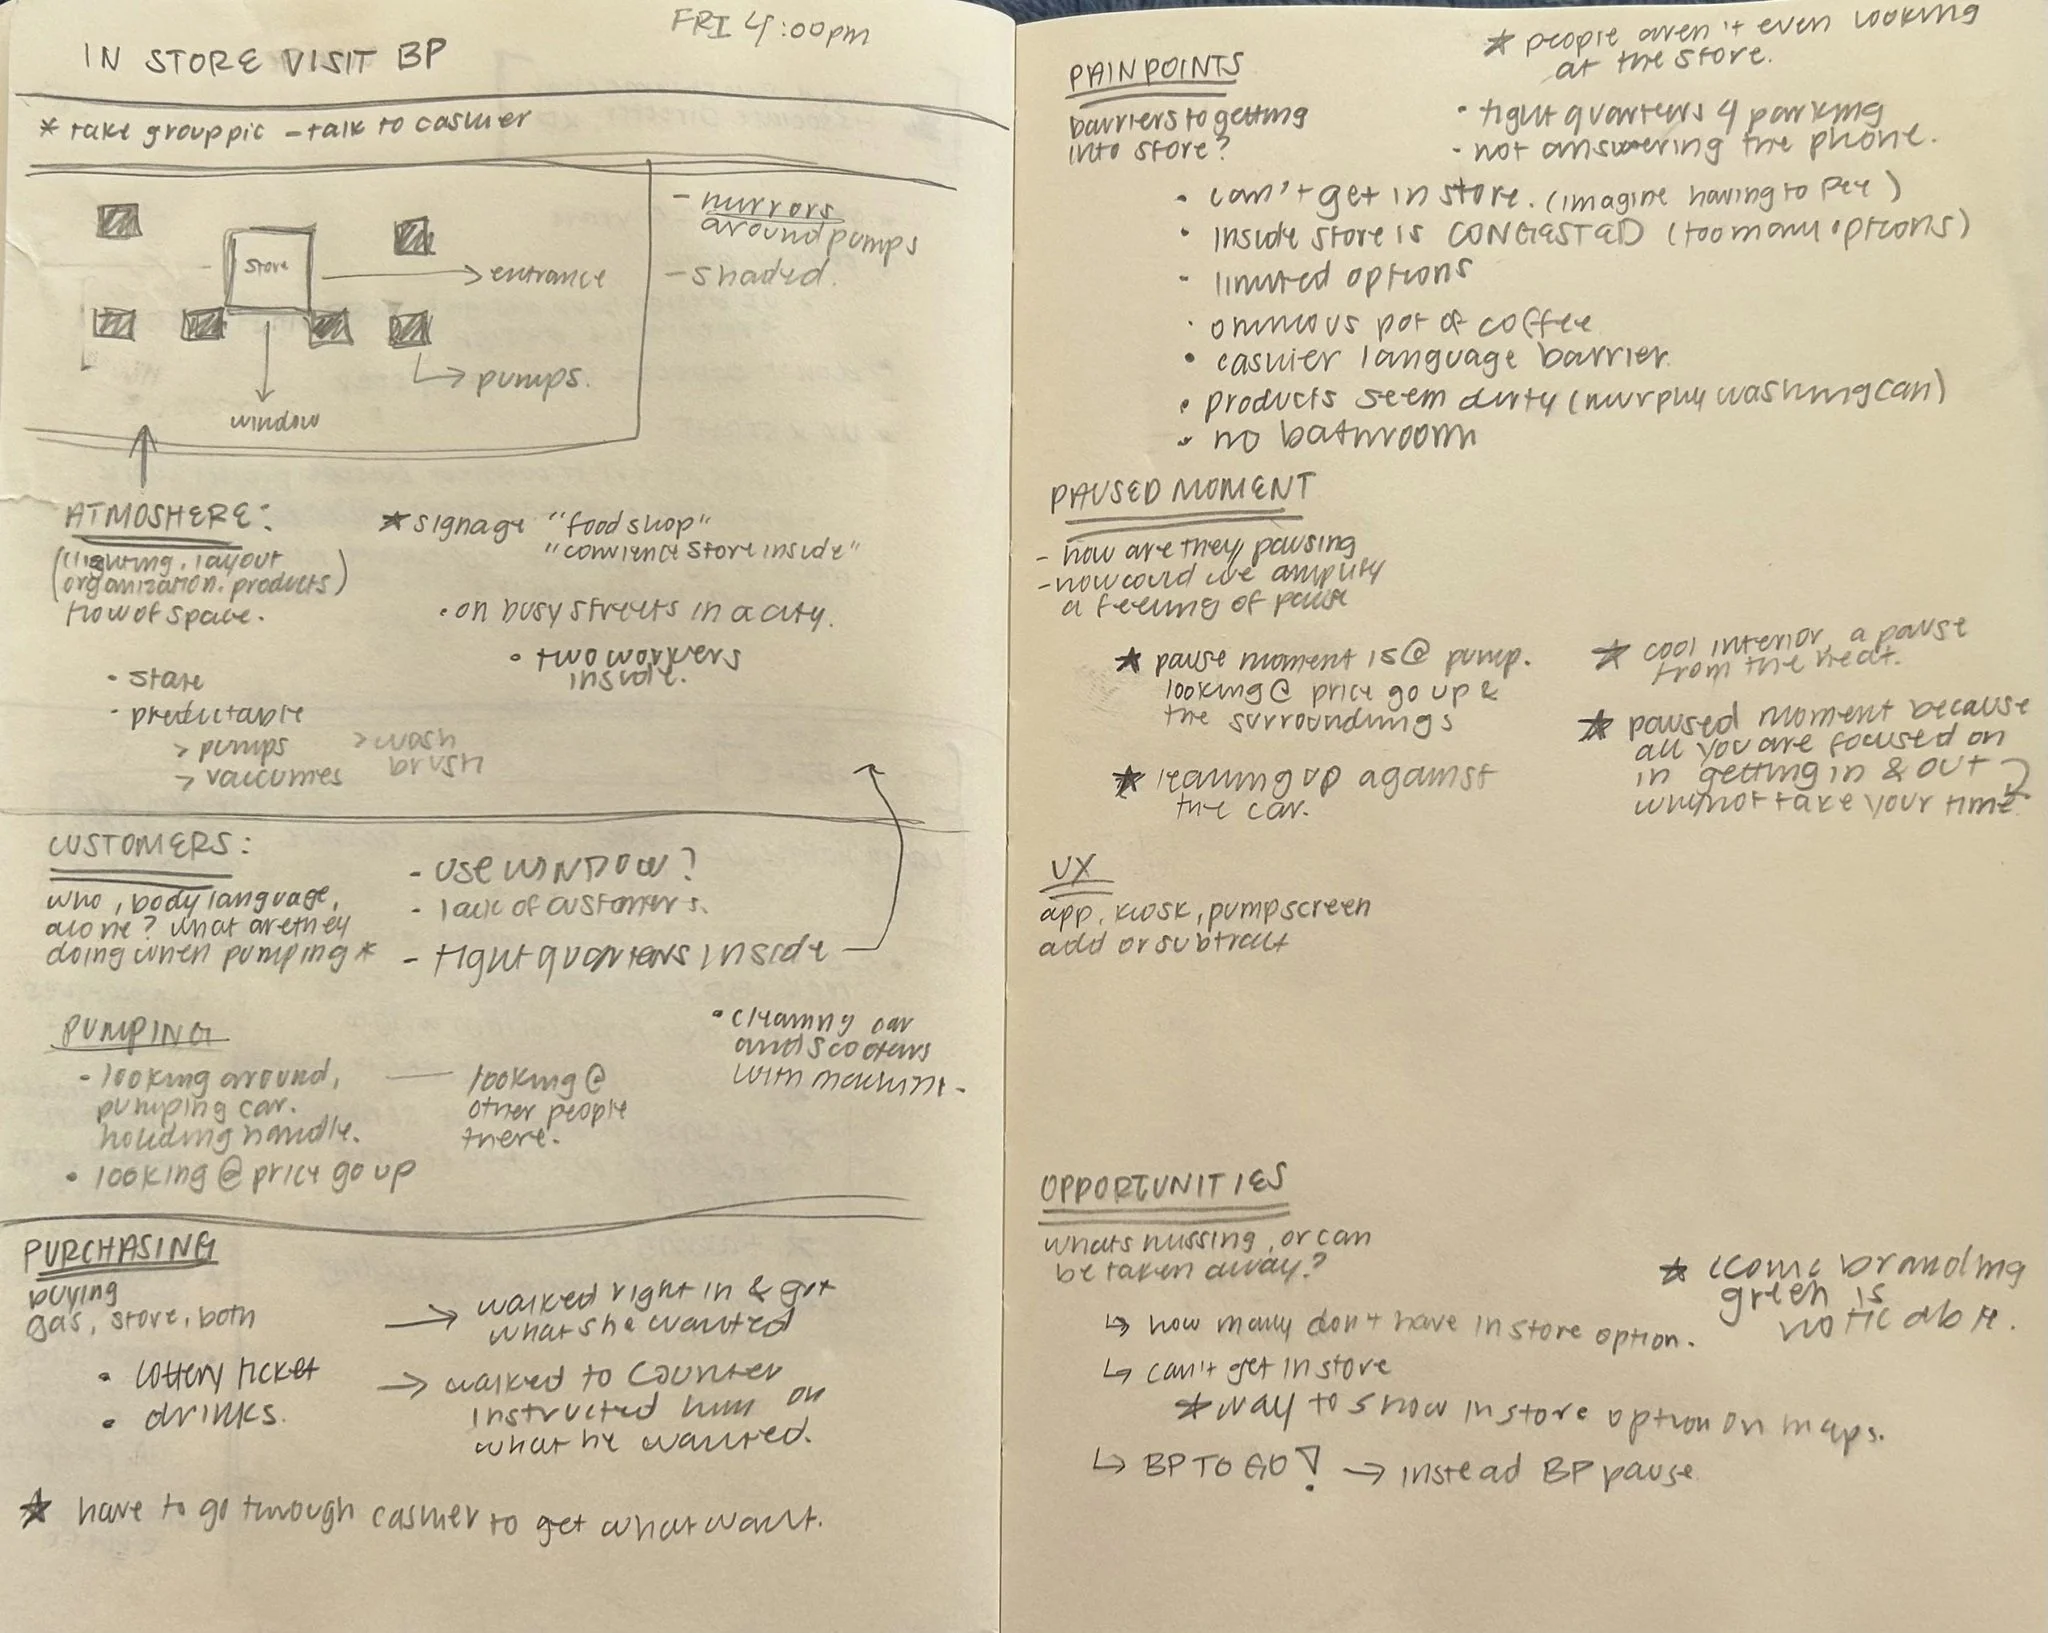 FRI 4:00pm
IN STORE VISIT BP
* take group pic - talk to cashier
store
→ entrance
window
→ pumps.
- mirrors
around pumps
- shaded.
ATMOSHERE:
(lighting, layout
organization. products)
flow of space.
* signage "food shop"
"convience store inside"
• on busy streets in a city.
• two workers
inside.
• stale
• predictable
> pumps
> vaccumes
> wash
brush
CUSTOMERS:
who, body language,
alone? what are they
doing when pumping *
- USE WINDOW?
- lack of customers.
- tight quarters inside
PUMPING
- looking around,
pumping car.
holding handle.
looking @
other people
there.
• looking @ price go up
• cleaning car
and scooters
with machine.
PURCHASING
buying
gas, store, both
• lottery ticket
• drinks.
→ walked right in & got
what she wanted
→ walked to counter
instructed him on
what he wanted.
* have to go through cashier to get what want.
* people aren't even looking
at the store.
PAINPOINTS
barriers to getting
into store?
• tight quarters 4 parking
- not answering the phone.
• can't get in store. (imagine having to pee)
• inside store is CONGESTED (too many options)
- limited options
• ominous pot of coffee
• cashier language barrier
• products seem dirty (murphy washing can)
• no bathroom
PAUSED MOMENT
- how are they pausing
- how could we amplify
a feeling of pause
* pause moment is @ pump.
looking @ price go up &
the surroundings
* leaning up against
the car.
* cool interior, a pause
from the heat.
* paused moment because
all you are focused on
in getting in & out
why not take your time
UX
app, kiosk, pump screen
add or subtract
OPPORTUNITIES
whats missing, or can
be taken away?
↳ how many don't have in store option.
↳ can't get in store
* way to show in store option on maps.
↳ BP TO GO! → instead BP pause
* iconic branding
green is
noticable.